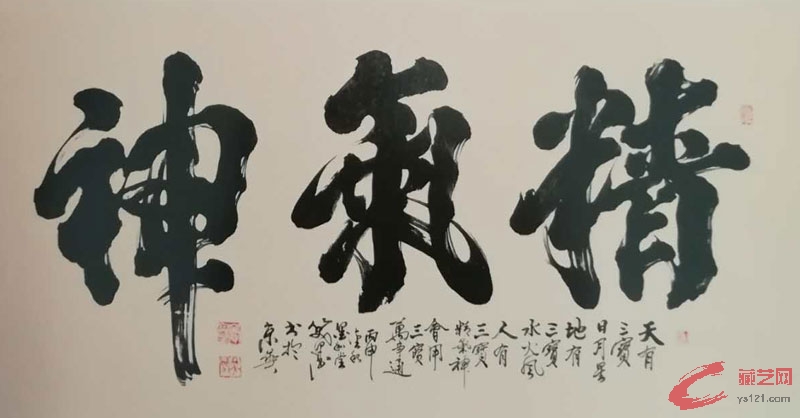 精氣神
天有
三寶
日月星
地有
三寶
水火風
人有
三寶
精氣神
會用
三寶
萬事通
丙申
書於
京華
藏艺网
ys121.com